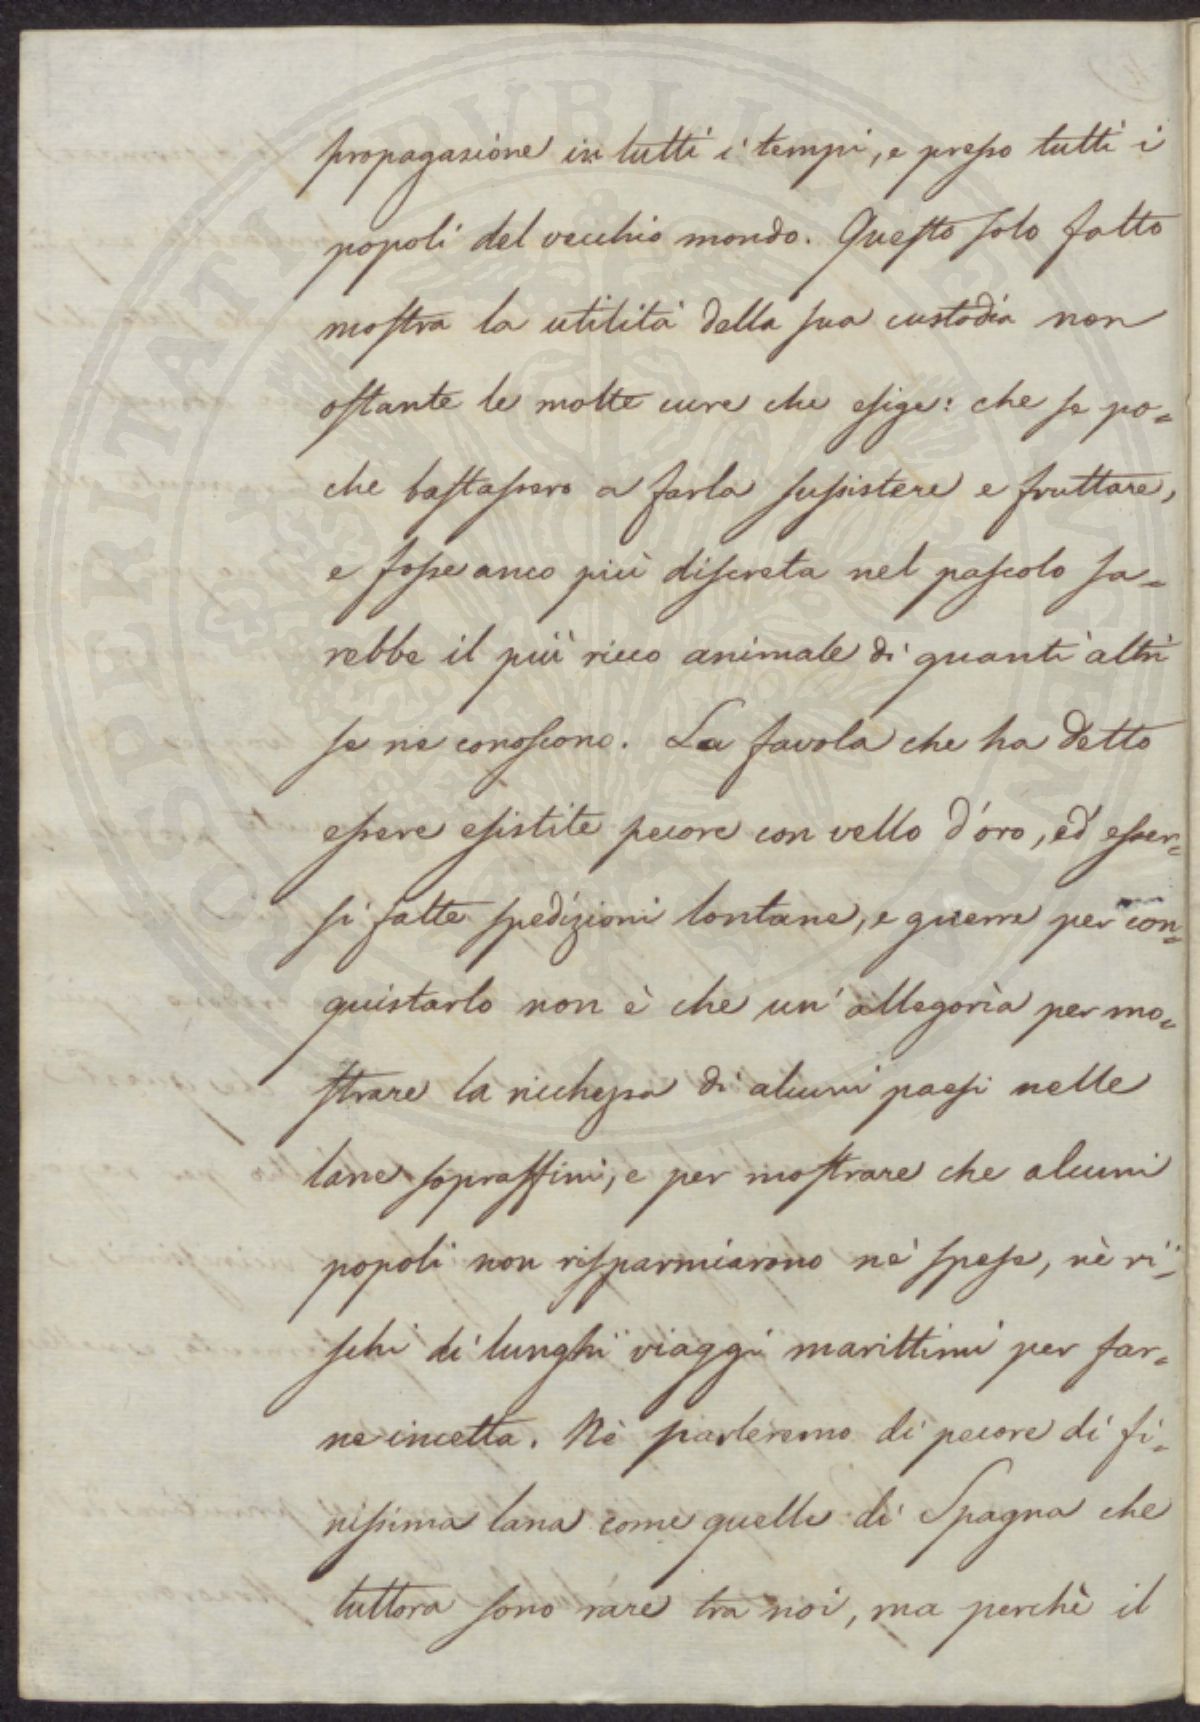 propagazione in tutti i tempi, e presso tutti i
popoli del vecchio mondo. Questo solo fatto
mostra la utilità della sua custodia non
ostante le molte cure che esige: che se po=
che bastassero a farla sussistere e fruttare,
e fosse anco più discreta nel pascolo sa=
rebbe il più ricco animale di quanti altri
se ne conoscono. La favola che ha detto
essere esistite pecore con vello d'oro, ed esser=
si fatte spedizioni lontane, e guerre per con=
quistarlo non è che un'allegorìa per mo=
strare la ricchezza di alcuni paesi nelle
lane sopraffini, e per mostrare che alcuni
popoli non risparmiarono nè spese, nè ri=
schi di lunghi viaggi marittimi per far=
ne incetta. Nè parleremo di pecore di fi=
nissima lana come quelle di Spagna che
tuttora sono rare tra noi, ma perchè il